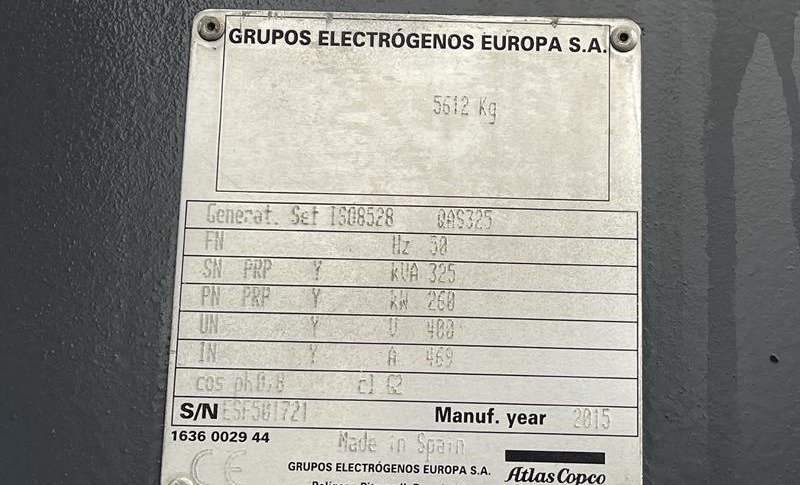 GRUPOS ELECTRÓGENOS EUROPA S.A.
5612 Kg
Generat. Set ISO8528 QAS325
FN Hz 50
SN PRP Y kVA 325
PN PRP Y kW 260
UN Y V 400
IN Y A 469
cos ph0,8 cl G2
S/N ESF501721 Manuf. year 2015
1636 0029 44
Made in Spain
CE
GRUPOS ELECTRÓGENOS EUROPA S.A.
Atlas Copco